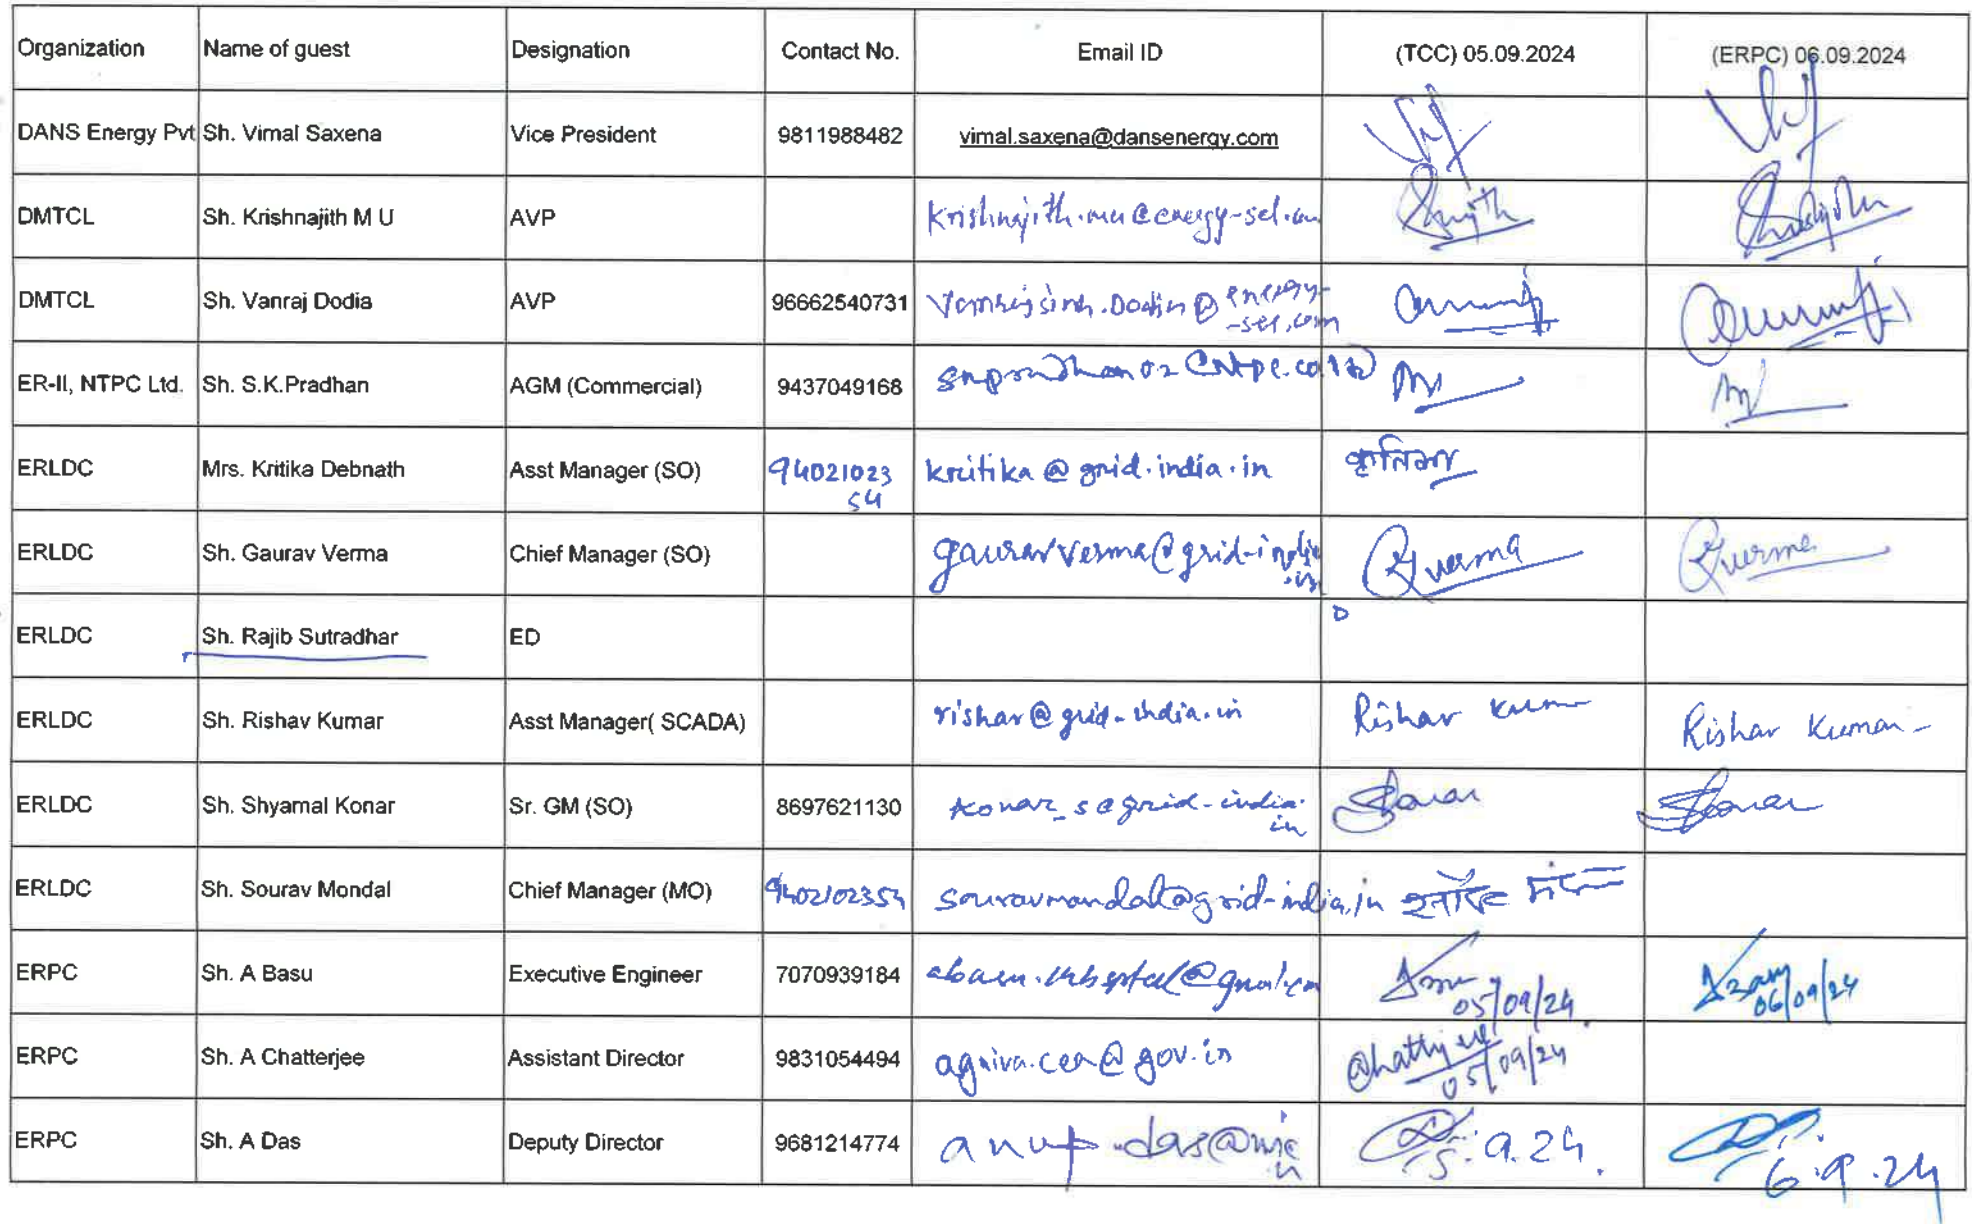 Organization Name of guest Designation Contact No. Email ID (TCC) 05.09.2024 (ERPC) 06.09.2024
DANS Energy Pvt Sh. Vimal Saxena Vice President 9811988482 vimal.saxena@dansenergy.com
DMTCL Sh. Krishnajith M U AVP krishnajith.mu@energy-sel.in
DMTCL Sh. Vanraj Dodia AVP 96662540731
ER-II, NTPC Ltd. Sh. S.K.Pradhan AGM (Commercial) 9437049168
ERLDC Mrs. Kritika Debnath Asst Manager (SO) 94021023 kritika@grid.india.in कृतिका
54
ERLDC Sh. Gaurav Verma Chief Manager (SO) gauravverma@grid-india Gverma Gverma
.in
ERLDC Sh. Rajib Sutradhar ED
ERLDC Sh. Rishav Kumar Asst Manager( SCADA) rishav@grid-india.in Rishav Kumar Rishav Kumar
ERLDC Sh. Shyamal Konar Sr. GM (SO) 8697621130 konar_s@grid-india. SKonar SKonar
in
ERLDC Sh. Sourav Mondal Chief Manager (MO) 9402102354 souravmondal@grid-india.in
ERPC Sh. A Basu Executive Engineer 7070939184
05/09/24 06/09/24
ERPC Sh. A Chatterjee Assistant Director 9831054494 agniva.cea@gov.in
05/09/24
ERPC Sh. A Das Deputy Director 9681214774 anup.das@nic 5.9.24. 6.9.24
in